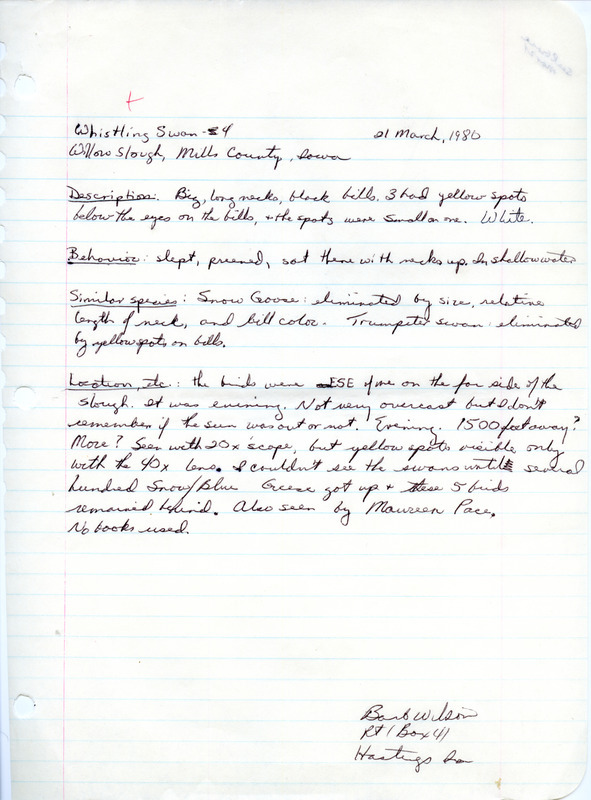 Whistling Swan - 4
21 March, 1980
Willow Slough, Mills County, Iowa
Description: Big, long necks, black bills. 3 had yellow spots
below the eyes on the bills, + the spots were small on one. White.
Behavior: slept, preened, sat there with necks up. In shallow water
Similar species: Snow Goose: eliminated by size, relative
length of neck, and bill color. Trumpeter swan: eliminated
by yellow spots on bills.
Location, etc.: the birds were ESE of me on the far side of the
slough. It was evening. Not very overcast but I don't
remember if the sun was out or not. Evening. 1500 feet away?
More? Seen with 20x scope, but yellow spots visible only
with the 40x lens. I couldn't see the swans until several
hundred Snow/Blue Geese got up + these 5 birds
remained behind. Also seen by Maureen Pace.
No books used.
Barb Wilson
Rt 1 Box 41
Hastings Ia